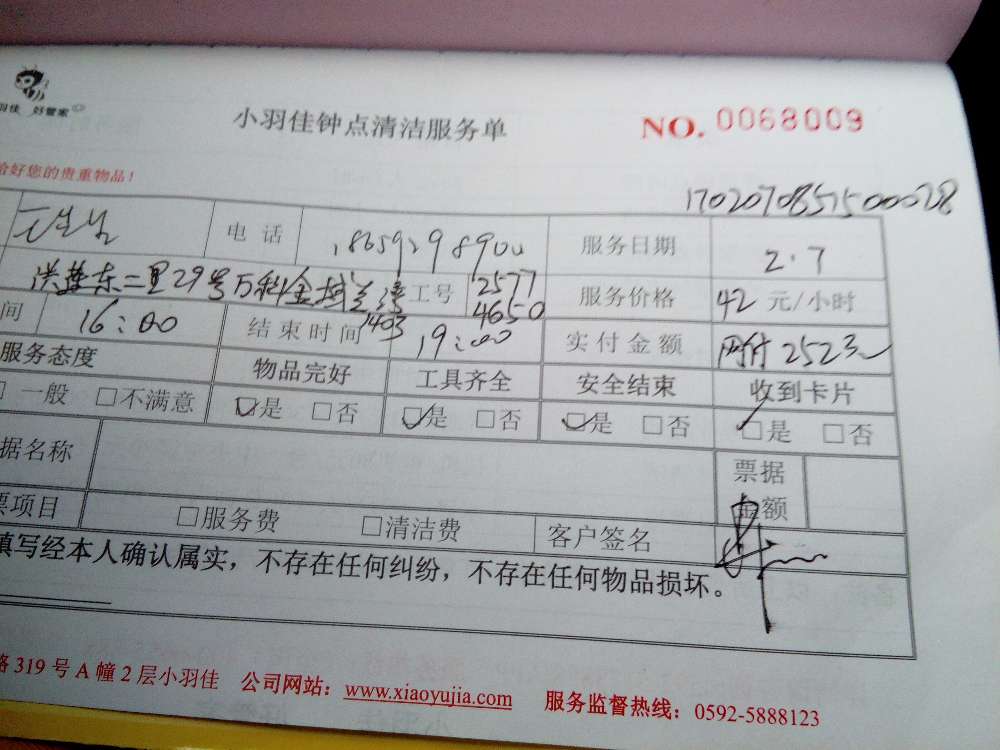 羽佳 好管家
小羽佳钟点清洁服务单 NO. 0068009
给好您的贵重物品！
1702070857500028
电话 服务日期 2.7
洪莲东二里29号万科金域 1403 工号 2577 4650 服务价格 42 元/小时
间 16:00 结束时间 19:00 实付金额 网付252元
服务态度 物品完好 工具齐全 安全结束 收到卡片
□一般 □不满意 □是 □否 □是 □否 □是 □否 □是 □否
据名称 票据金额
票项目 □服务费 □清洁费 客户签名
填写经本人确认属实，不存在任何纠纷，不存在任何物品损坏。
路319号A幢2层小羽佳 公司网站：www.xiaoyujia.com 服务监督热线：0592-5888123